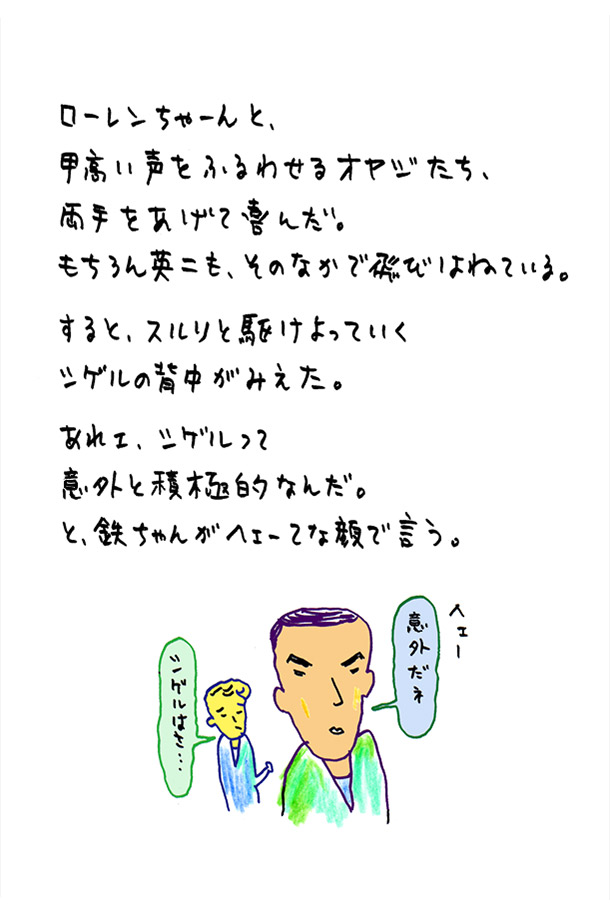 ローレンちゃーんと、
甲高い声をふるわせるオヤジたち、
両手をあげて喜んだ。
もちろん英二も、そのなかで飛びはねている。
すると、スルリと駆けよっていく
シゲルの背中がみえた。
あれェ、シゲルって
意外と積極的なんだ。
と、鉄ちゃんがヘェーてな顔で言う。
ヘェー
意外だネ
シゲルはさ…